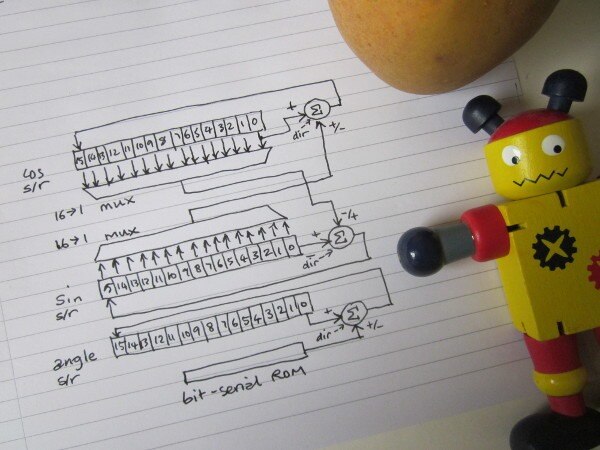 + Σ
dir +/-
15 14 13 12 11 10 9 8 7 6 5 4 3 2 1 0
cos
s/r
16→1 mux
16→1 mux
-/+
+ Σ
dir
15 14 13 12 11 10 9 8 7 6 5 4 3 2 1 0
Sin
s/r
15 14 13 12 11 10 9 8 7 6 5 4 3 2 1 0
+ Σ
dir +/-
angle
s/r
bit-serial ROM